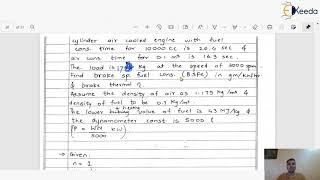 Ekeeda
cylinder air cooled engine with fuel
cons. time for 10000 cc is 20.6 sec &
air cons. time for 0.1 m3 is 16.3 sec.
The load is 17 kg at the speed of 3000 rpm
Find brake sp. fuel cons. (BSFC) in gm/kwhr
& brake thermal η
Assume the density of air as 1.175 kg/m3 &
density of fuel to be 0.7 kg/m3
heating
The lower value of fuel is 43 MJ/kg &
the dynamometer const. is 5000
P = WN/5000 kw
→ Given:
n = 1